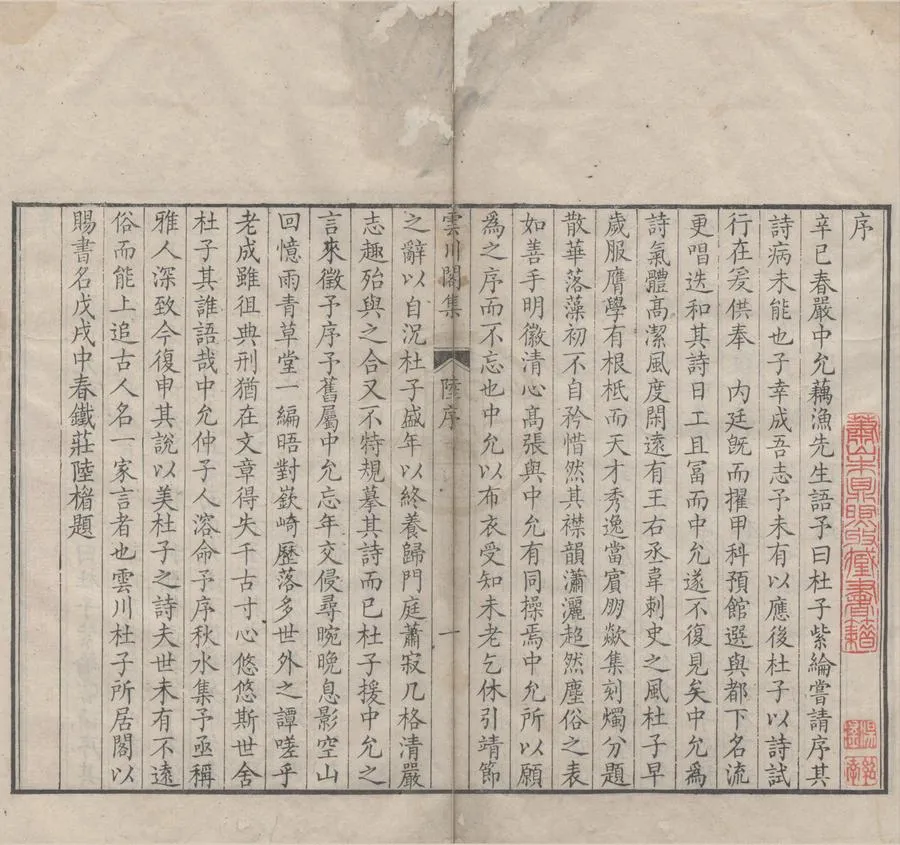 序
辛巳春嚴中允藕漁先生語予曰杜子紫綸嘗請序其
詩病未能也子幸成吾志予未有以應後杜子以詩試
行在爰供奉 内廷旣而擢甲科預館選與都下名流
更唱迭和其詩日工且富而中允遂不復見矣中允爲
詩氣體髙潔風度閑遠有王右丞韋刺史之風杜子早
歲服膺學有根柢而天才秀逸當賓朋燕集刻燭分題
散華落藻初不自矜惜然其襟韻瀟灑超然塵俗之表
如善手明徽清心髙張與中允有同操焉中允所以願
爲之序而不忘也中允以布衣受知未老乞休引靖節
雲川閣集 陸序 一
之辭以自況杜子盛年以終養歸門庭蕭寂几格清嚴
志趣殆與之合又不特規摹其詩而已杜子援中允之
言來徵予序予舊屬中允忘年交侵尋晼晚息影空山
回憶雨青草堂一編晤對嶔崎歷落多世外之譚嗟乎
老成雖徂典刑猶在文章得失千古寸心悠悠斯世舍
杜子其誰語哉中允仲子人溶命予序秋水集予亟稱
雅人深致今復申其說以美杜子之詩夫世未有不遠
俗而能上追古人名一家言者也雲川杜子所居閣以
賜書名戊戌中春鐵莊陸楣題
蕭山朱鼎煦收藏書籍